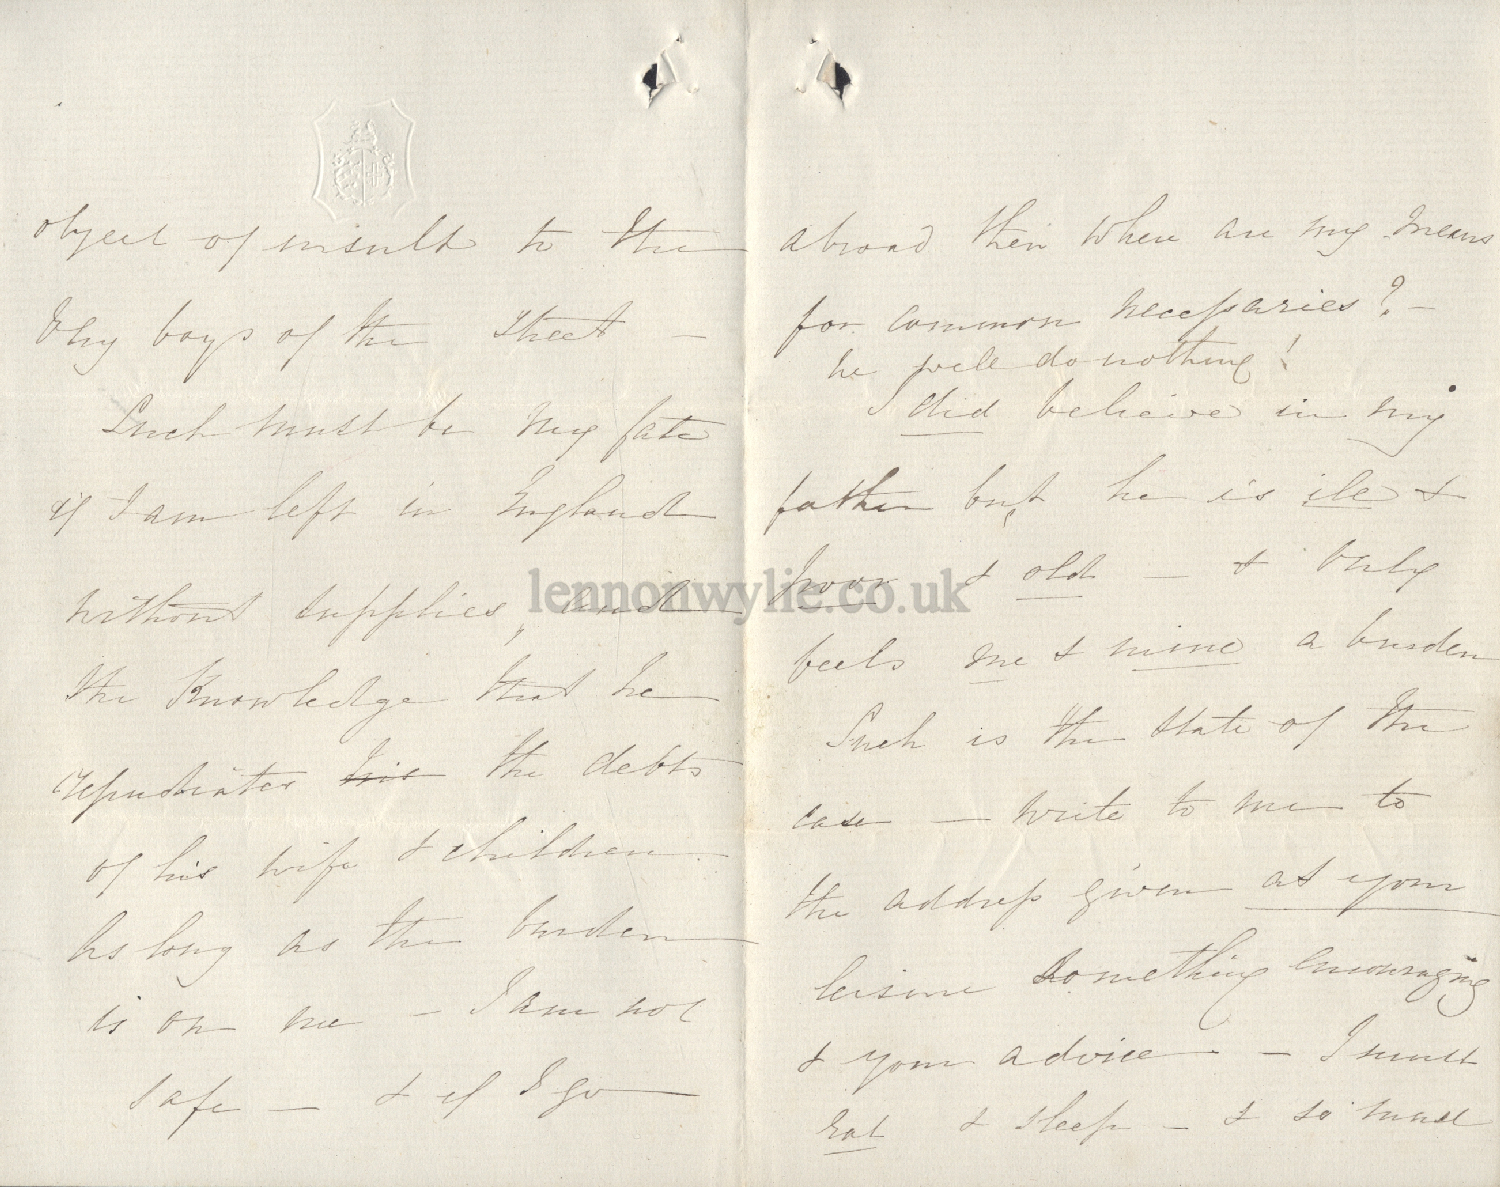 object of insult to the
very boys of the street —
Such must be my fate
if I am left in England
without supplies, and
the knowledge that he
repudiates his the debts
of his wife & children
As long as the burden
is on me — I am not
safe — & if I go
abroad then where are my means
for common necessaries? —
he will do nothing!
I did believe in my
father but, he is ill &
poor & old — & only
feels me & mine a burden
Such is the state of the
case — write to me to
the address given at your
leisure something encouraging
& your advice — I must
eat & sleep — & so must
lennonwylie.co.uk